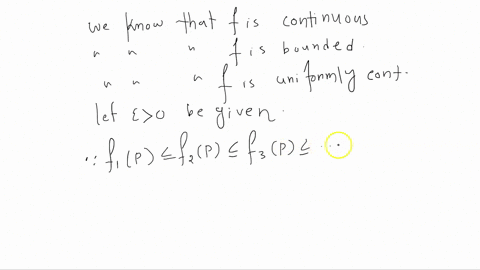 we know that f is continuous
" " " f is bounded.
" " " f is uniformly cont.
let ε>0 be given.
∵ f₁(P) ≤ f₂(P) ≤ f₃(P) ≤ ...